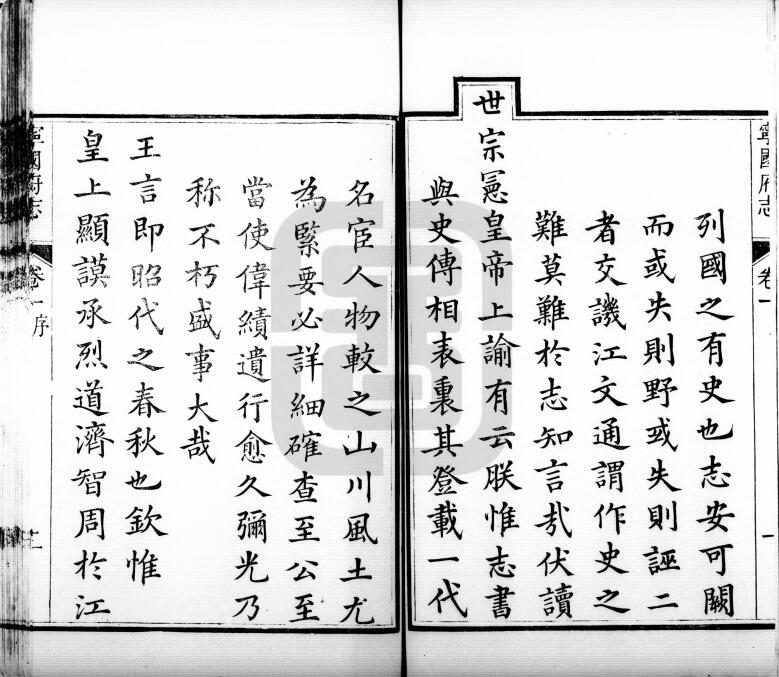 寧國府志
卷一
一
列國之有史也志安可闕
而或失則野或失則誣二
者交譏江文通謂作史之
難莫難於志知言㢤伏讀
世宗憲皇帝上諭有云朕惟志書
與史傳相表裏其登載一代
名宦人物較之山川風土尤
為緊要必詳細確查至公至
當使偉績遺行愈久彌光乃
称不朽盛事大哉
王言即昭代之春秋也欽惟
皇上顯謨承烈道濟智周於江
寧國府志
卷一序